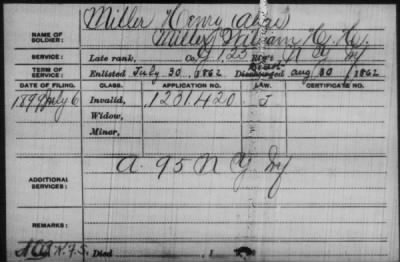 Miller Henry (alias)
NAME OF SOLDIER: Miller, William H. H.
SERVICE: Late rank, Co. G, 125 Reg't N Y Inf
TERM OF SERVICE: Enlisted July 30, 1862 Discharged Aug 30 1862
DATE OF FILING. CLASS. APPLICATION NO. LAW. CERTIFICATE NO.
1899 July 6 Invalid, 1201.420 J
Widow,
Minor,
ADDITIONAL SERVICES: A. 95 N Y Inf
REMARKS:
Died 1